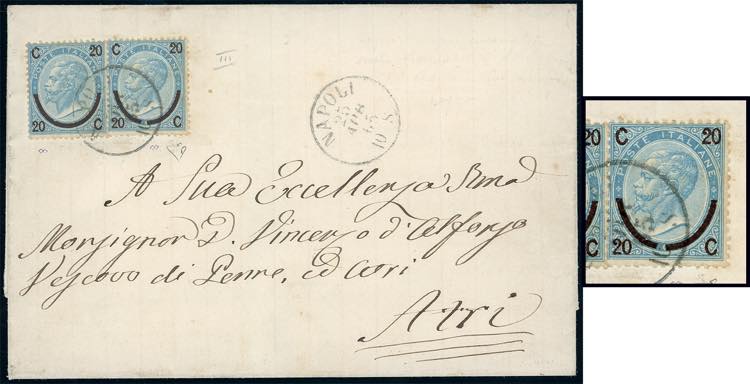 C 20 C 20
POSTE ITALIANE POSTE ITALIANE
20 C 20 C
III
NAPOLI
25
APR
65
10 S
A Sua Eccellenza
Monsignor D. Vincenzo d'Alfonso
Vescovo di Penne, ed Atri
Atri
C 20
POSTE ITALIANE
20 C